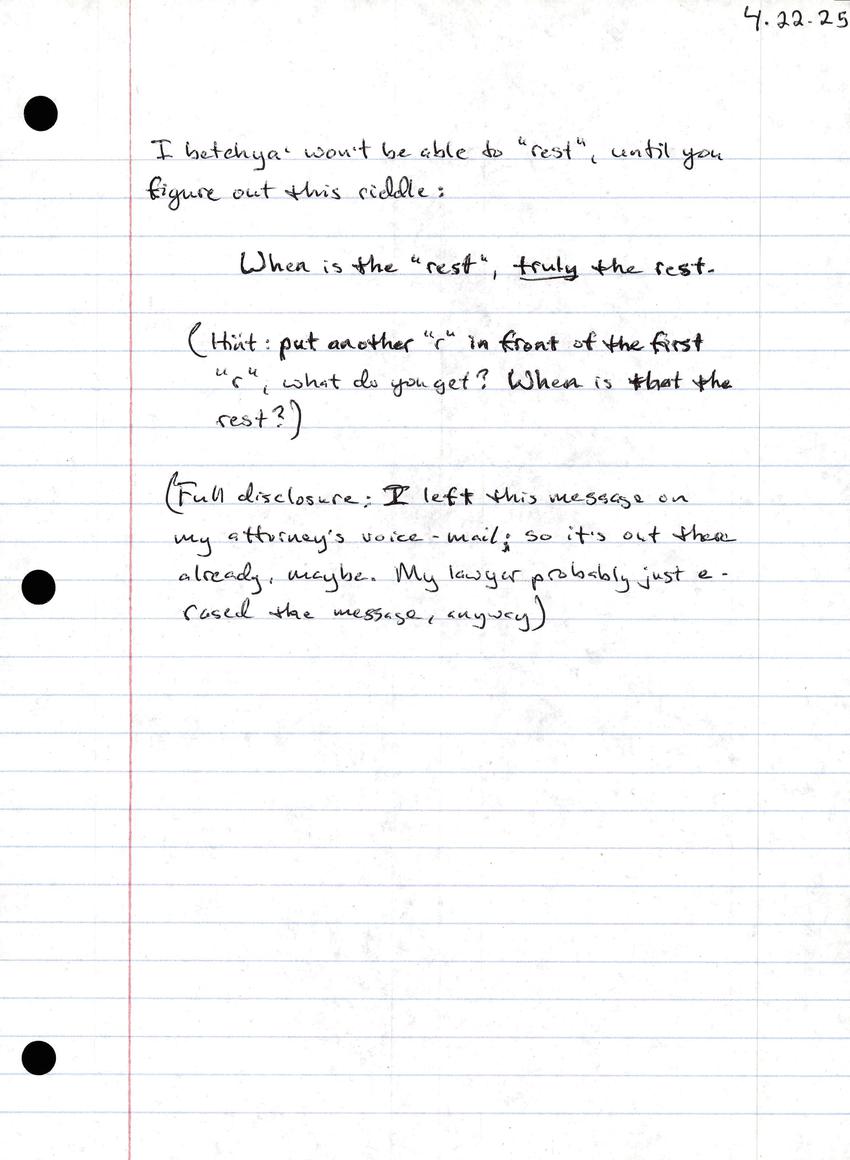 4.22.25
I betchya' won't be able to "rest", until you
figure out this riddle:
When is the "rest", truly the rest.
(Hint: put another "r" in front of the first
"r", what do you get? When is that the
rest?)
(Full disclosure: I left this message on
my attorney's voice-mail; so it's out there
already, maybe. My lawyer probably just e-
rased the message, anyway)